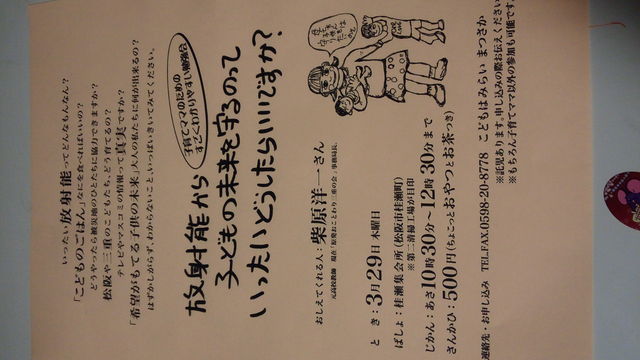 いったい放射能ってどんなもんなん？
「こどものごはん」なにを食べればいいの？
どうやったら被災地のひとたちに協力できますか？
松阪や三重のこどもたち、どう育てるの？
テレビやマスコミの情報って真実ですか？
「希望がもてる子供の未来」大人の私たちに何が出来るの？
はずかしがらず、わからないこと、いっぱいきいてみてください。
子育てママのための
すごくわかりやすい勉強会
放射能から
子どもの未来を守るのって
いったいどうしたらいいですか？
おしえてくれる人：柴原洋一さん
元高校教師 現在「原発おことわり三重の会」事務局長。
とき：3月29日木曜日
ばしょ：桂瀬集会所(松阪市桂瀬町)
※第二清掃工場が目印
じかん：あさ10時30分〜12時30分まで
さんかひ：500円(ちょこっとおやつとお茶つき)
連絡先・お申し込み TEL.FAX.0598-20-8778 こどもはみらい まつさか
※託児あります。申し込みの際お伝えください
※もちろん子育てママ以外の参加も可能です。